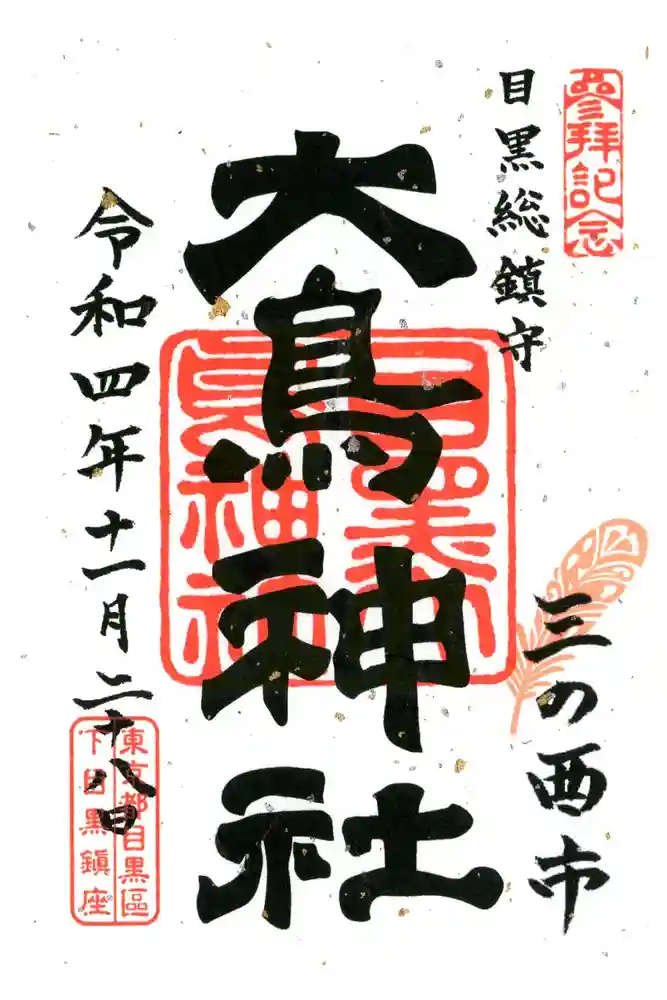 參拝記念
目黒総鎮守
三の酉市
大鳥神社
目黒大
鳥神社
令和四年十一月二十八日
東京都目黒區
下目黒鎮座